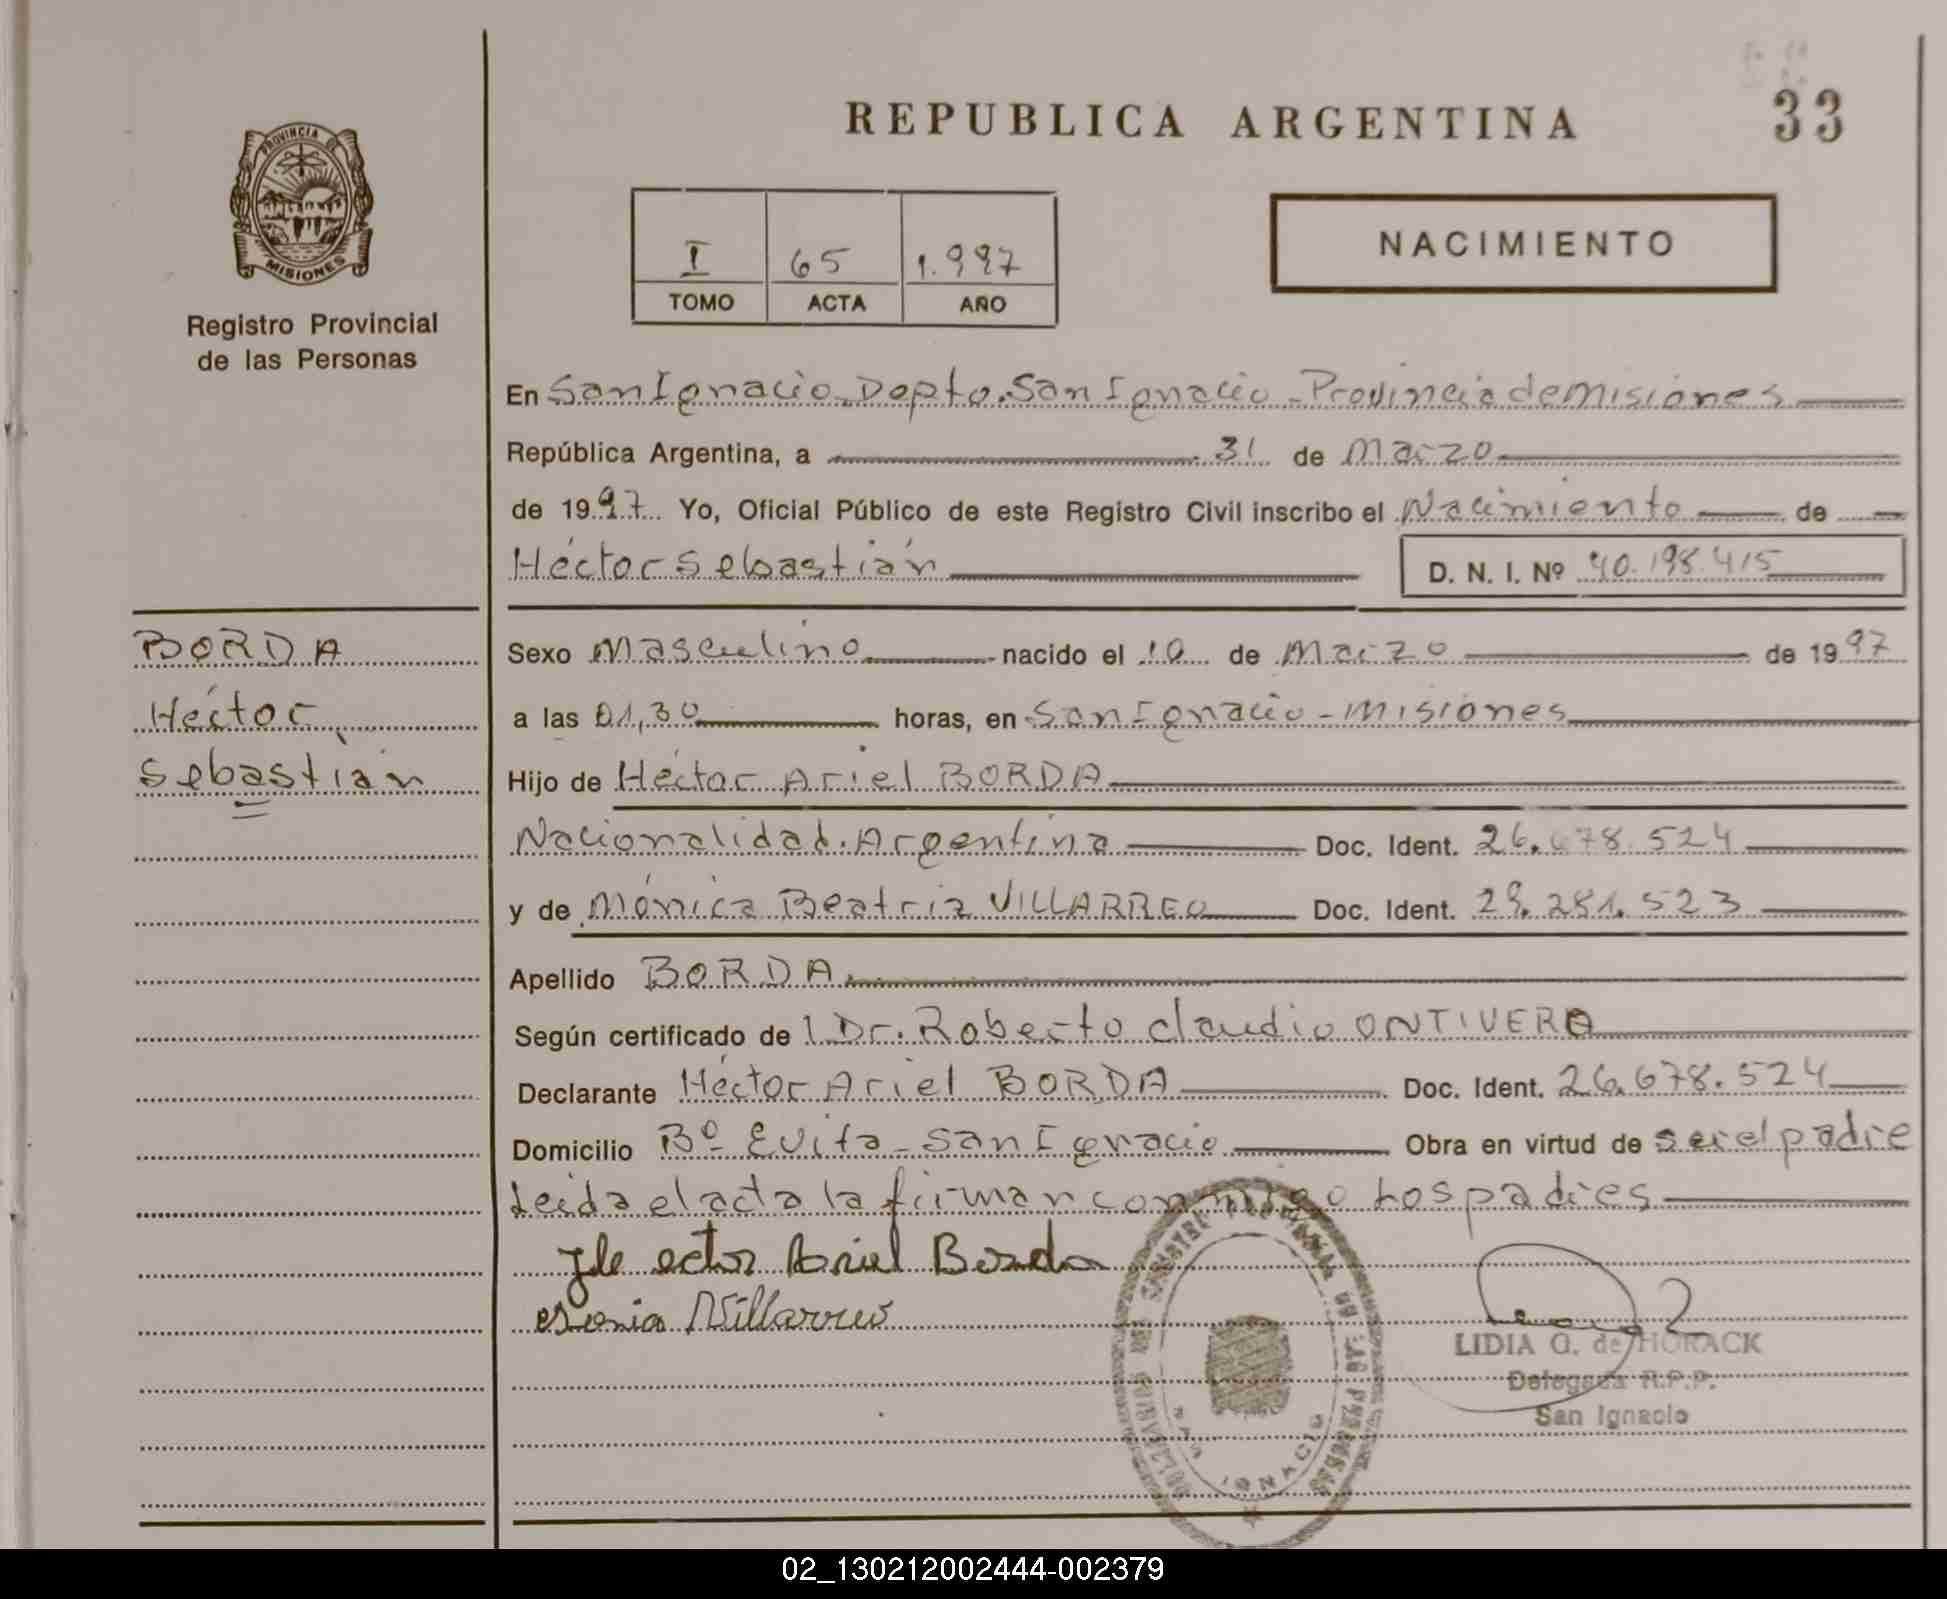 REPUBLICA ARGENTINA
33
PROVINCIA DE
MISIONES
Registro Provincial
de las Personas
I 65 1.997
TOMO ACTA AÑO
NACIMIENTO
En San Ignacio. Depto. San Ignacio - Provincia de Misiones
República Argentina, a 31 de Marzo
de 1997 Yo, Oficial Público de este Registro Civil inscribo el Nacimiento de
Héctor Sebastián
D. N. I. Nº 40.198.415
BORDA
Héctor
Sebastián
Sexo Masculino nacido el 10 de Marzo de 1997
a las 01,30 horas, en San Ignacio - Misiones
Hijo de Héctor Ariel BORDA
Nacionalidad. Argentina Doc. Ident. 26.678.524
y de Mónica Beatriz VILLARREO Doc. Ident. 29.281.523
Apellido BORDA
Según certificado de l Dr. Roberto Claudio ONTIVERO
Declarante Héctor Ariel BORDA Doc. Ident. 26.678.524
Domicilio Bº Evita - San Ignacio Obra en virtud de ser el padre
Leida el acta la firman conmigo Los padres
Hector Ariel Borda
Villarreo
LIDIA G. de HORACK
Delegada R.P.P.
San Ignacio
SAN IGNACIO
02_130212002444-002379